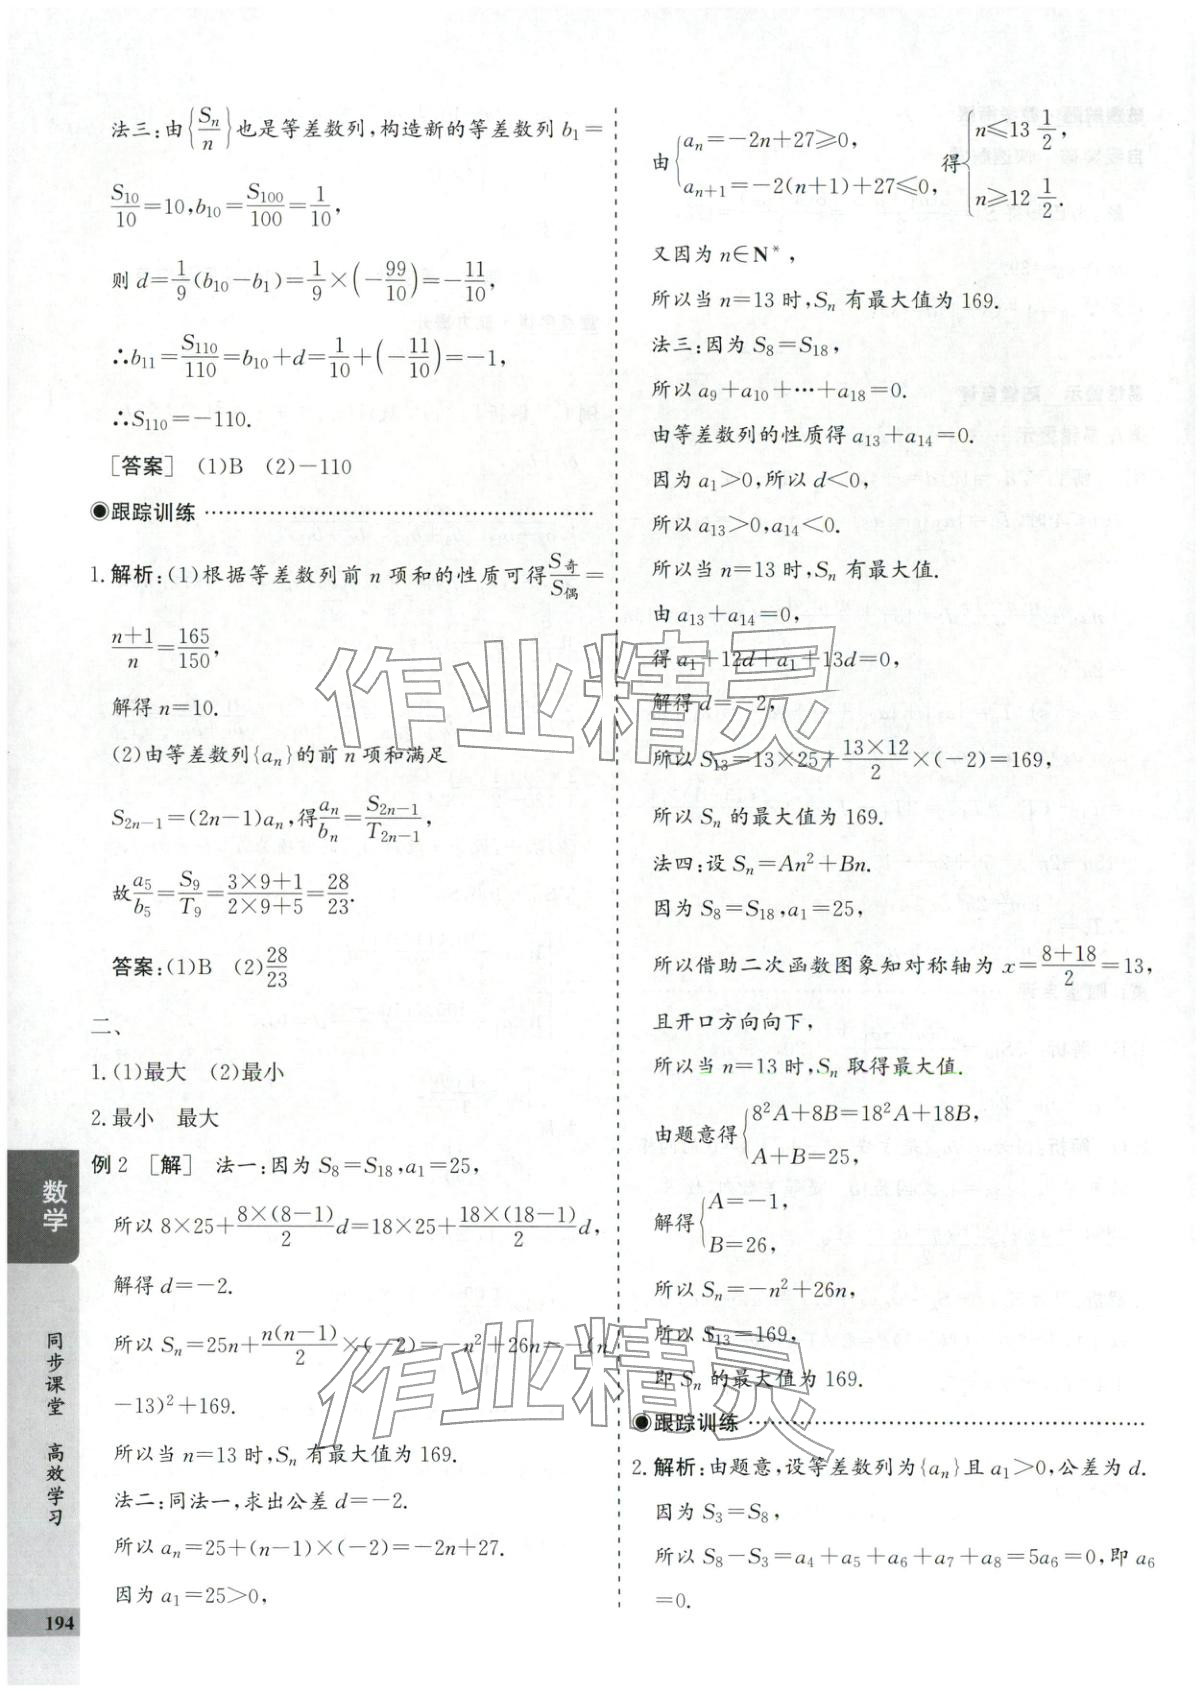 法三:由{Sₙ/n}也是等差数列,构造新的等差数列 b₁=
S₁₀/10=10,b₁₀=S₁₀₀/100=1/10,
则 d=1/9(b₁₀-b₁)=1/9×(-99/10)=-11/10,
∴b₁₁=S₁₁₀/110=b₁₀+d=1/10+(-11/10)=-1,
∴S₁₁₀=-110.
[答案] (1)B (2)-110
◉跟踪训练
1.解析:(1)根据等差数列前 n 项和的性质可得S奇/S偶=
(n+1)/n=165/150,
解得 n=10.
(2)由等差数列{aₙ}的前 n 项和满足
S₂ₙ₋₁=(2n-1)aₙ,得aₙ/bₙ=S₂ₙ₋₁/T₂ₙ₋₁,
故a₅/b₅=S₉/T₉=(3×9+1)/(2×9+5)=28/23.
答案:(1)B (2)28/23
二、
1.(1)最大 (2)最小
2.最小 最大
例 2 [解] 法一:因为 S₈=S₁₈,a₁=25,
所以 8×25+8×(8-1)/2 d=18×25+18×(18-1)/2 d,
解得 d=-2.
所以 Sₙ=25n+n(n-1)/2×(-2)=-n²+26n=-(n
-13)²+169.
所以当 n=13 时,Sₙ 有最大值为 169.
法二:同法一,求出公差 d=-2.
所以 aₙ=25+(n-1)×(-2)=-2n+27.
因为 a₁=25>0,
由{aₙ=-2n+27≥0, aₙ₊₁=-2(n+1)+27≤0, 得{n≤13 1/2, n≥12 1/2.
又因为 n∈N*,
所以当 n=13 时,Sₙ 有最大值为 169.
法三:因为 S₈=S₁₈,
所以 a₉+a₁₀+…+a₁₈=0.
由等差数列的性质得 a₁₃+a₁₄=0.
因为 a₁>0,所以 d<0,
所以 a₁₃>0,a₁₄<0.
所以当 n=13 时,Sₙ 有最大值.
由 a₁₃+a₁₄=0,
得 a₁+12d+a₁+13d=0,
解得 d=-2,
所以 S₁₃=13×25+13×12/2×(-2)=169,
所以 Sₙ 的最大值为 169.
法四:设 Sₙ=An²+Bn.
因为 S₈=S₁₈,a₁=25,
所以借助二次函数图象知对称轴为 x=(8+18)/2=13,
且开口方向向下,
所以当 n=13 时,Sₙ 取得最大值.
由题意得{8²A+8B=18²A+18B, A+B=25,
解得{A=-1, B=26,
所以 Sₙ=-n²+26n,
所以 S₁₃=169,
即 Sₙ 的最大值为 169.
◉跟踪训练
2.解析:由题意,设等差数列为{aₙ}且 a₁>0,公差为 d.
因为 S₃=S₈,
所以 S₈-S₃=a₄+a₅+a₆+a₇+a₈=5a₆=0,即 a₆
=0.
数学
同步课堂 高效学习
194
作业精灵
作业精灵